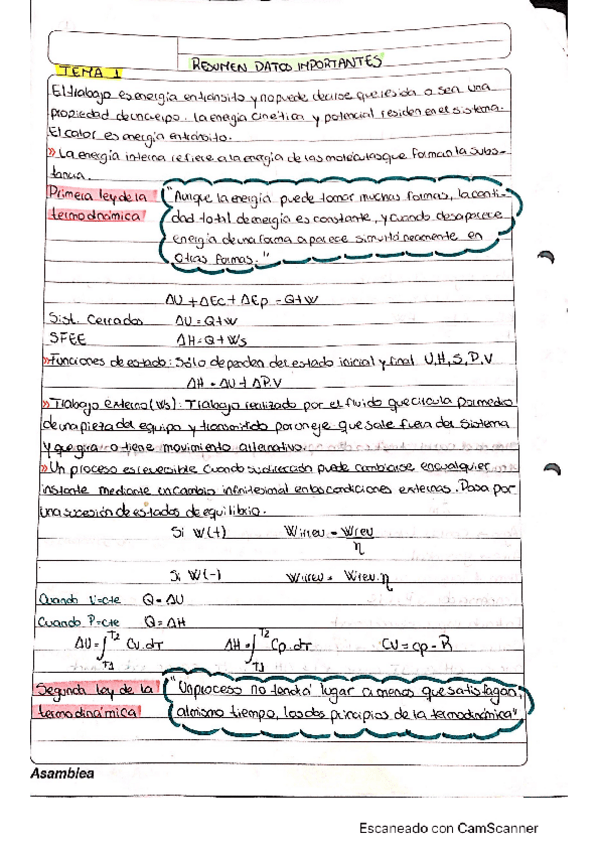 RESUMEN DATOS IMPORTANTES
TEMA 1
El trabajo es energía en tránsito y no puede decirse que resida o sea una
propiedad de un cuerpo. La energía cinética y potencial residen en el sistema.
El calor es energía en tránsito.
» La energía interna refiere a la energía de las moléculas que forman la subs-
tancia.
Primera ley de la "Aunque la energía puede tomar muchas formas, la canti-
termodinámica dad total de energía es constante, y cuando desaparece
energía de una forma aparece simultáneamente en
otras formas."
ΔU + ΔEc + ΔEp = Q+W
Sist. Cerrados ΔU = Q+W
SFEE ΔH = Q + Ws
» Funciones de estado: Sólo dependen del estado inicial y final U,H,S,P,V
ΔH = ΔU + ΔP.V
» Trabajo externo (Ws): Trabajo realizado por el fluido que circula por medio
de una pieza del equipo y transmitido por un eje que sale fuera del sistema
y que gira o tiene movimiento alternativo.
» Un proceso es reversible cuando su dirección puede cambiarse en cualquier
instante mediante un cambio infinitesimal en las condiciones externas. Pasa por
una sucesión de estados de equilibrio.
Si W(+) Wirrev = Wrev/η
Si W(-) Wirrev = Wrev.η
Cuando V=cte Q = ΔU
Cuando P=cte Q = ΔH
ΔU = ∫T1T2 Cv.dT ΔH = ∫T1T2 Cp.dT CV = cp - R
Segunda ley de la "Un proceso no tendrá lugar a menos que satisfagan,
termodinámica al mismo tiempo, los dos principios de la termodinámica"
Asamblea
Escaneado con CamScanner